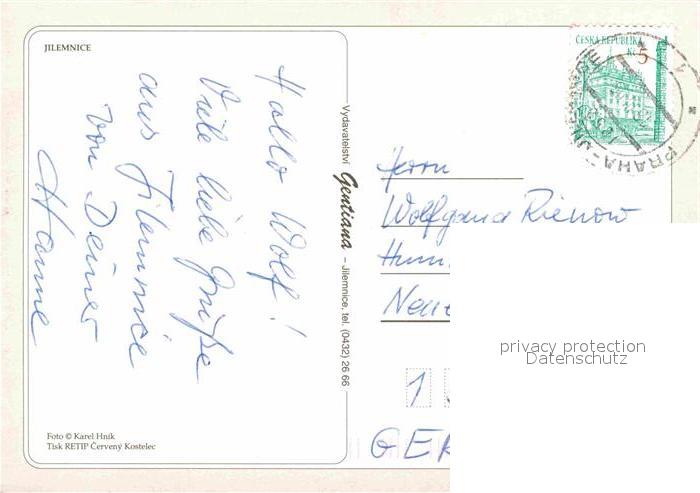 JILEMNICE
Hallo Wolf!
Viele liebe Grüße
aus Jilemnice
von Deiner
Hanne
Foto © Karel Hník
Tisk RETIP Červený Kostelec
Vydavatelství Gentiana – Jilemnice, tel. (0432) 26 66
ČESKÁ REPUBLIKA
Kč 5
PRAHA
Herrn
Wolfgang Rienow
1
GER
privacy protection
Datenschutz